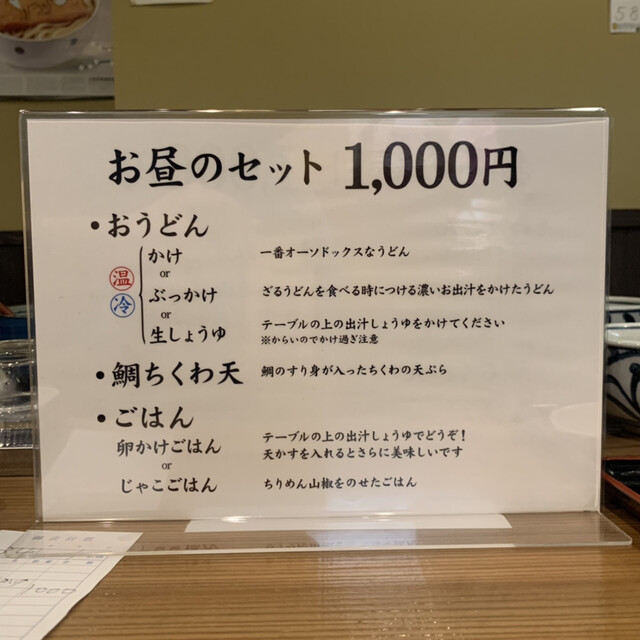 お昼のセット 1,000円
・おうどん
温
冷
かけ 一番オーソドックスなうどん
or
ぶっかけ ざるうどんを食べる時につける濃いお出汁をかけたうどん
or
生しょうゆ テーブルの上の出汁しょうゆをかけてください
※からいのでかけ過ぎ注意
・鯛ちくわ天 鯛のすり身が入ったちくわの天ぷら
・ごはん
卵かけごはん テーブルの上の出汁しょうゆでどうぞ!
天かすを入れるとさらに美味しいです
or
じゃこごはん ちりめん山椒をのせたごはん
58